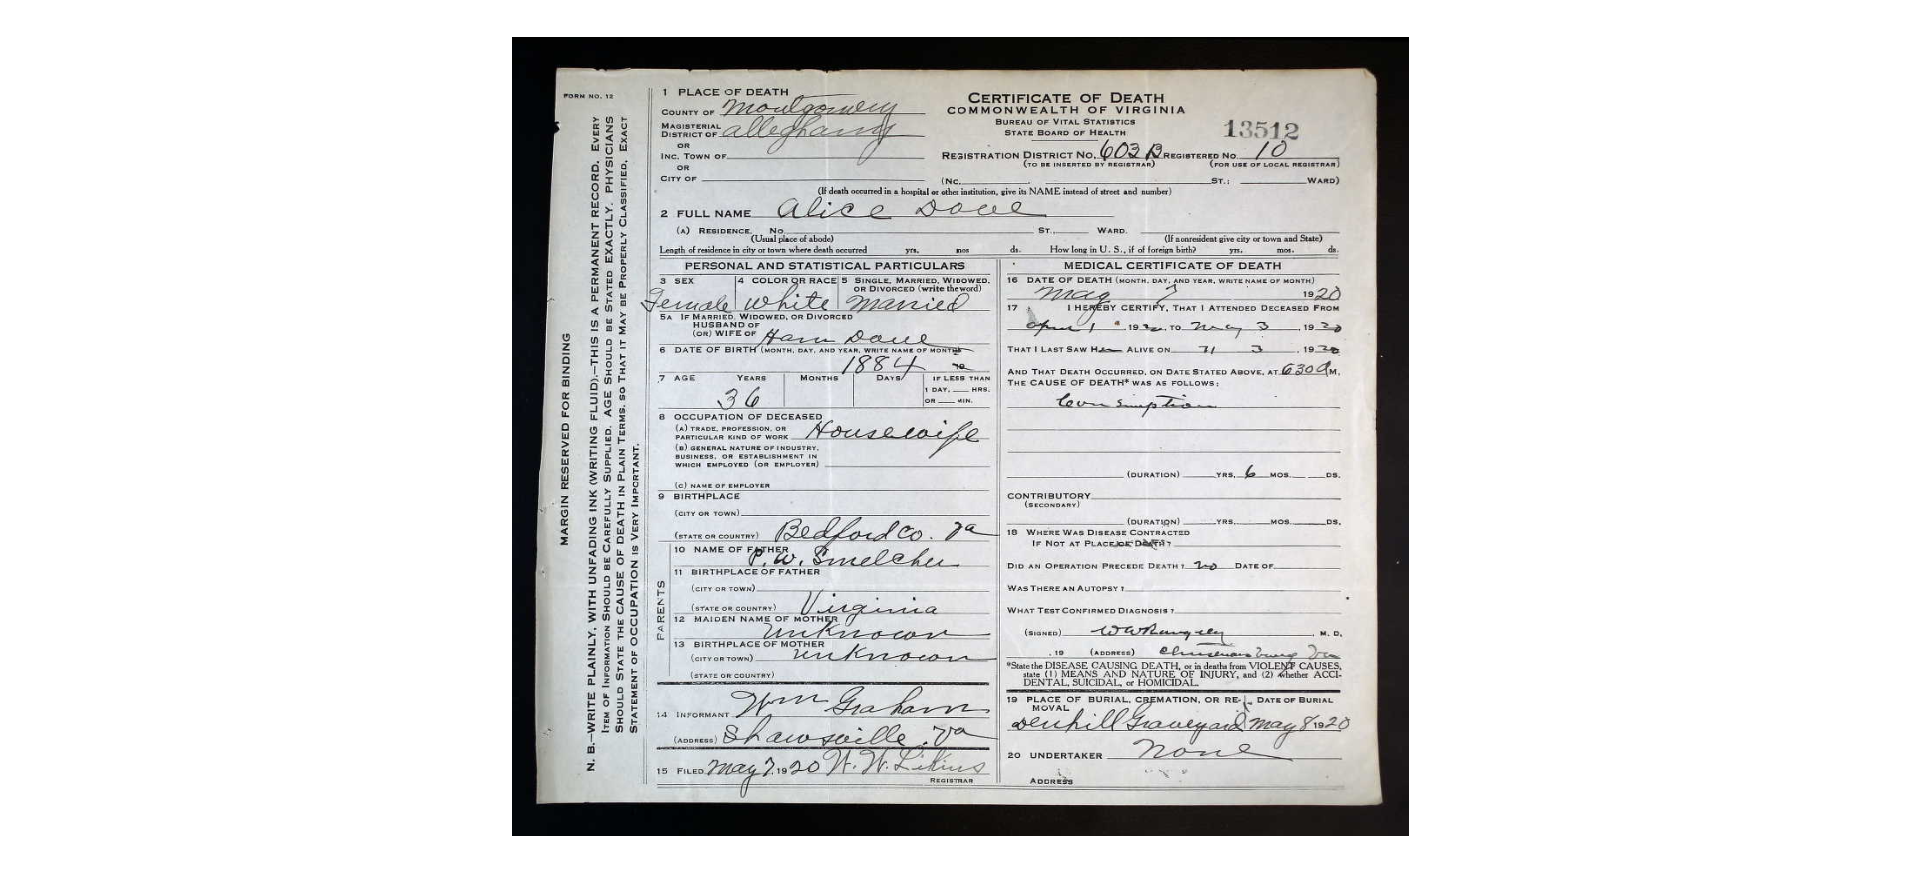 FORM NO. 12
MARGIN RESERVED FOR BINDING
N. B.—WRITE PLAINLY, WITH UNFADING INK (WRITING FLUID).—THIS IS A PERMANENT RECORD. EVERY
ITEM OF INFORMATION SHOULD BE CAREFULLY SUPPLIED. AGE SHOULD BE STATED EXACTLY. PHYSICIANS
SHOULD STATE THE CAUSE OF DEATH IN PLAIN TERMS, SO THAT IT MAY BE PROPERLY CLASSIFIED. EXACT
STATEMENT OF OCCUPATION IS VERY IMPORTANT.
1 PLACE OF DEATH
COUNTY OF Montgomery
MAGISTERIAL
DISTRICT OF Alleghany
OR
INC. TOWN OF
OR
CITY OF
CERTIFICATE OF DEATH
COMMONWEALTH OF VIRGINIA
BUREAU OF VITAL STATISTICS
STATE BOARD OF HEALTH
13512
REGISTRATION DISTRICT NO. 603 B REGISTERED NO. 10
(TO BE INSERTED BY REGISTRAR) (FOR USE OF LOCAL REGISTRAR)
(NO. ST.; WARD)
(If death occurred in a hospital or other institution, give its NAME instead of street and number)
2 FULL NAME Alice
(A) RESIDENCE. No. ST., WARD.
(Usual place of abode) (If nonresident give city or town and State)
Length of residence in city or town where death occurred yrs. mos ds. How long in U. S., if of foreign birth? yrs. mos. ds.
PERSONAL AND STATISTICAL PARTICULARS
3 SEX 4 COLOR OR RACE 5 SINGLE, MARRIED, WIDOWED,
OR DIVORCED (write the word)
Female White Married
5A IF MARRIED, WIDOWED, OR DIVORCED
HUSBAND OF
(OR) WIFE OF
6 DATE OF BIRTH (MONTH, DAY, AND YEAR, WRITE NAME OF MONTH)
1884
7 AGE YEARS MONTHS DAYS IF LESS THAN
1 DAY, HRS.
OR MIN.
36
8 OCCUPATION OF DECEASED
(A) TRADE, PROFESSION, OR
PARTICULAR KIND OF WORK Housewife
(B) GENERAL NATURE OF INDUSTRY,
BUSINESS, OR ESTABLISHMENT IN
WHICH EMPLOYED (OR EMPLOYER)
(C) NAME OF EMPLOYER
9 BIRTHPLACE
(CITY OR TOWN)
(STATE OR COUNTRY) Bedford Co. Va
PARENTS
10 NAME OF FATHER P. W. Smelcher
11 BIRTHPLACE OF FATHER
(CITY OR TOWN)
(STATE OR COUNTRY) Virginia
12 MAIDEN NAME OF MOTHER unknown
13 BIRTHPLACE OF MOTHER
(CITY OR TOWN) unknown
(STATE OR COUNTRY)
14 INFORMANT Wm Graham
(ADDRESS) Shawsville Va
15 FILED May 7, 1920 W. W. Likins
REGISTRAR
MEDICAL CERTIFICATE OF DEATH
16 DATE OF DEATH (MONTH, DAY, AND YEAR, WRITE NAME OF MONTH)
May 7 1920
17 I HEREBY CERTIFY, THAT I ATTENDED DECEASED FROM
April 1 1920 TO May 3, 1920
THAT I LAST SAW H ALIVE ON 3, 1920
AND THAT DEATH OCCURRED, ON DATE STATED ABOVE, AT 630 M.
THE CAUSE OF DEATH* WAS AS FOLLOWS:
Consumption
(DURATION) YRS. 6 MOS. DS.
CONTRIBUTORY
(SECONDARY)
(DURATION) YRS. MOS. DS.
18 WHERE WAS DISEASE CONTRACTED
IF NOT AT PLACE OF DEATH?
DID AN OPERATION PRECEDE DEATH? no DATE OF
WAS THERE AN AUTOPSY?
WHAT TEST CONFIRMED DIAGNOSIS?
(SIGNED) M. D.
, 19 (ADDRESS) Christiansburg Va
*State the DISEASE CAUSING DEATH, or in deaths from VIOLENT CAUSES,
state (1) MEANS AND NATURE OF INJURY, and (2) whether ACCI-
DENTAL, SUICIDAL, or HOMICIDAL.
19 PLACE OF BURIAL, CREMATION, OR RE- DATE OF BURIAL
MOVAL
Graveyard May 8 1920
20 UNDERTAKER None
ADDRESS